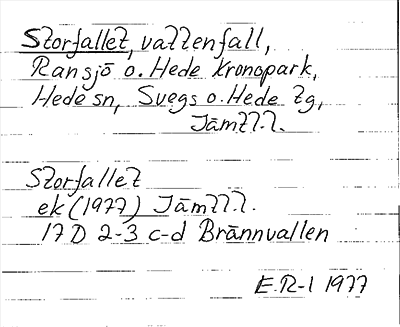 Storfallet, vattenfall,
Ransjö o. Hede kronopark,
Hede sn, Svegs o. Hede tg,
Jämtl.l.
Storfallet
ek (1977) Jämtl.l.
17 D 2-3 c-d Brännvallen
E.R-l 1977